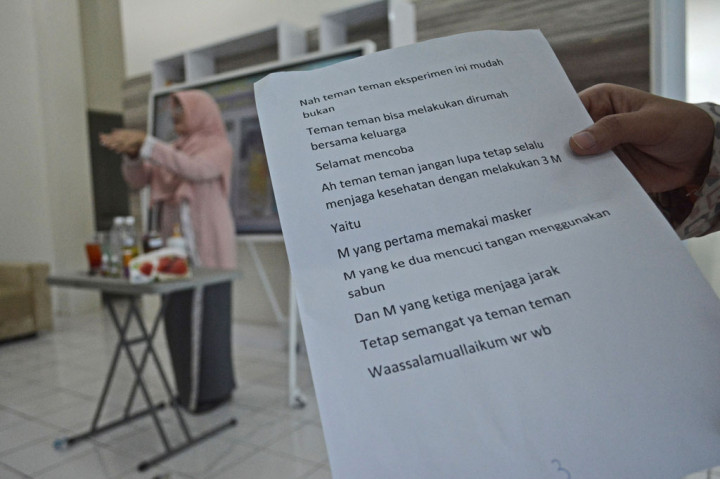 Nah teman teman eksperimen ini mudah
bukan
Teman teman bisa melakukan dirumah
bersama keluarga
Selamat mencoba
Ah teman teman jangan lupa tetap selalu
menjaga kesehatan dengan melakukan 3 M
Yaitu
M yang pertama memakai masker
M yang ke dua mencuci tangan menggunakan
sabun
Dan M yang ketiga menjaga jarak
Tetap semangat ya teman teman
Waassalamuallaikum wr wb
3